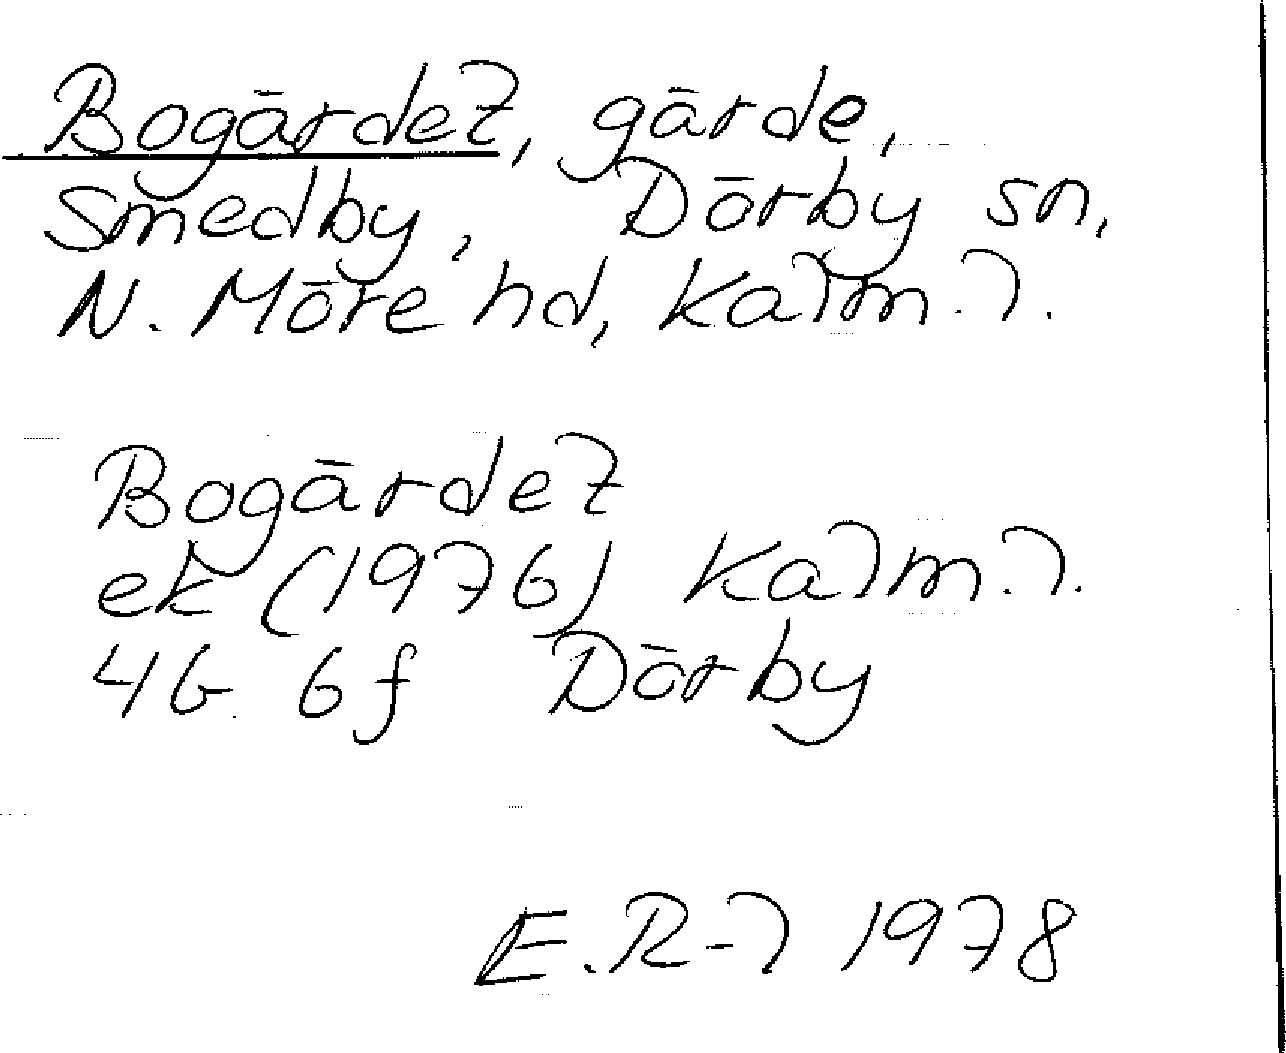 Bogärdet, gärde,
Smedby, Dörby sn,
N. Möre hd, Kalm. l.
Bogärdet
ek (1976) Kalm. l.
4G 6f Dörby
E.R-l 1978